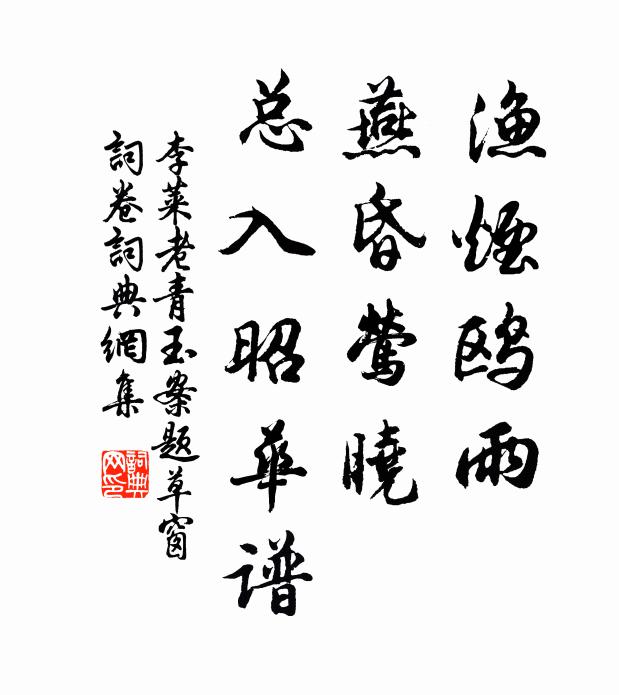 渔煙鸥雨
燕昏莺曉
总入昭华谱
李莱老青玉案题草窗
詞卷詞典網集
詞典
网印